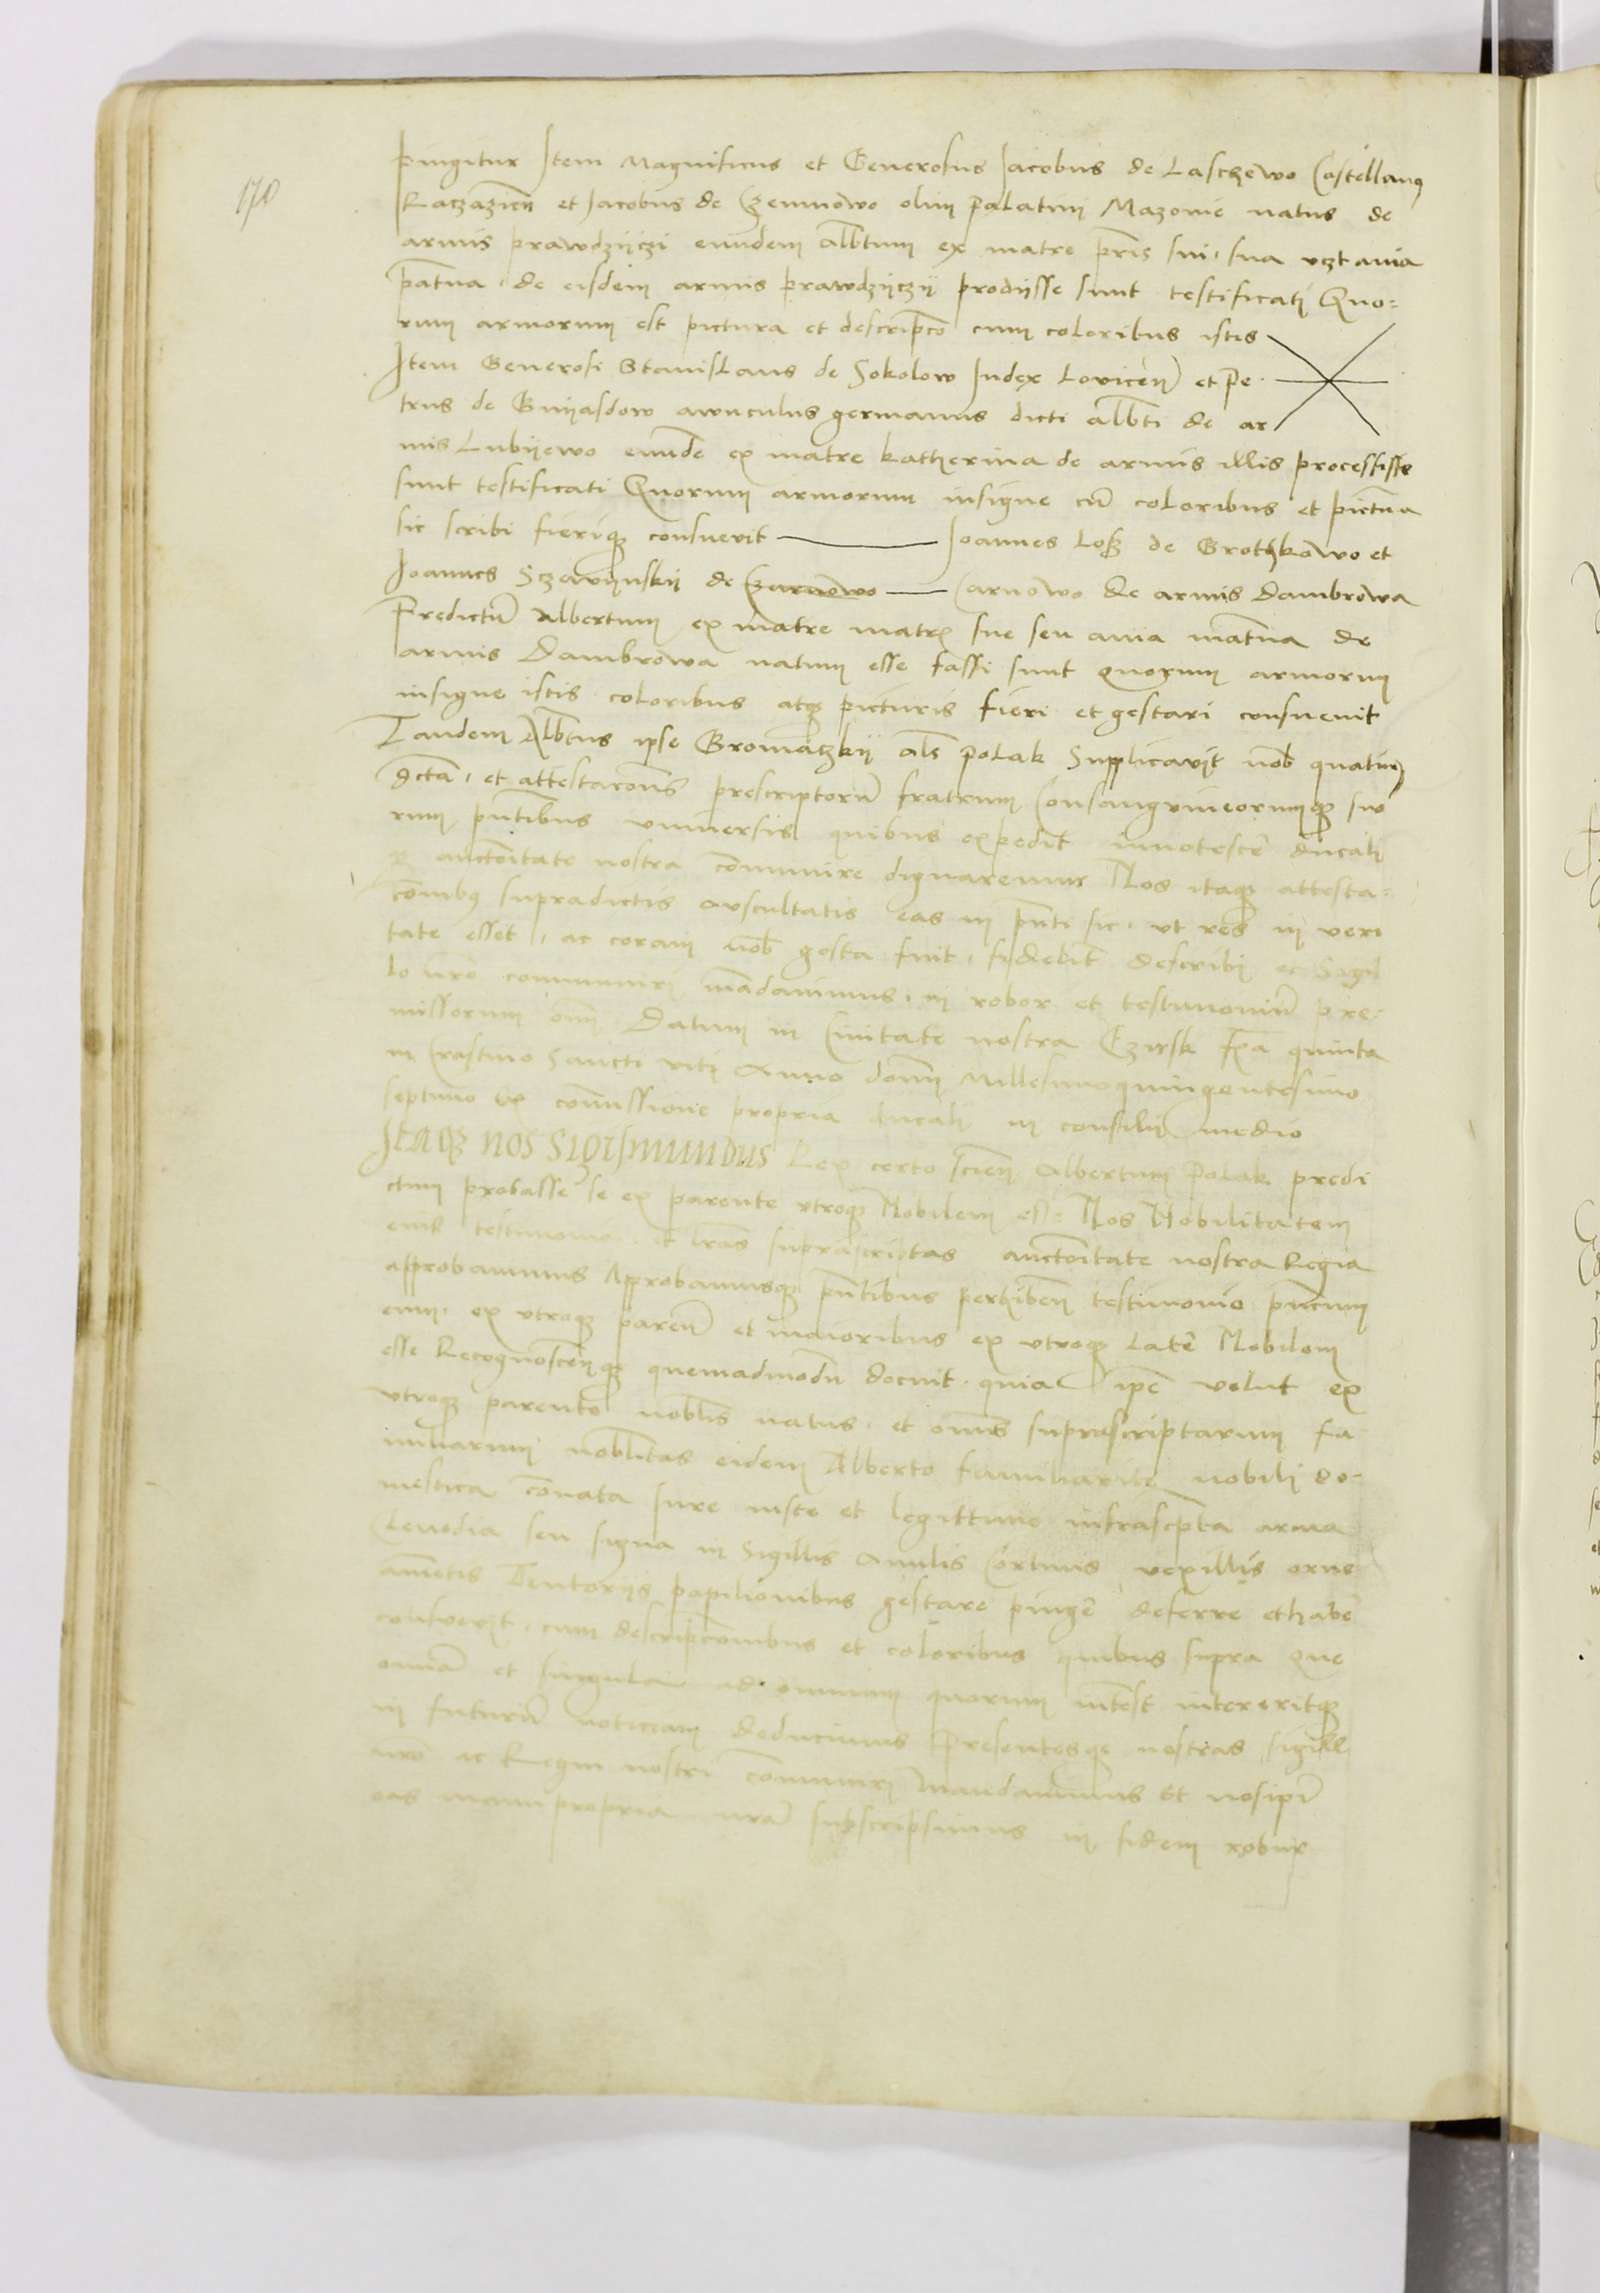 170
pingitur Item Magnificus et Generosus Jacobus de Laschewo Castellanus
Raczazien et Jacobus de Czemnowo olim palatini Mazovie natus de
armis prawdzijczi eiusdem Albtum ex matre pris sui, sua vczt avia
patna, de eisdem armis prawdzijczij prodijsse sunt testificati Quo=
rum armorum est pictura et descripco cum coloribus istis
Item Generosi Stanislaus de Sokolow Judex Lovicen et Pe
trus de Gnijasdow awnculus germanus dicti Albti de ar
mis Lubijewo eiusde ex matre Katherina de armis illis processisse
sunt testificati Quorum armorum insigne cum coloribus et pictura
sic scribi fierique consuevit Joannes Losz de Grothkowo et
Joannes Sczavijnskij de Czarnowo Carnowo de armis Dambrowa
Predictum Albertum ex matre matris sue seu avia matna de
armis Dambrowa natum esse fassi sunt quorum armorum
insigne istis coloribus atque picturis fieri et gestari consuevit
Tandem Albtus ipse Gromaczkij als Polak Supplicavit nob quatin
dicta, et attestacons prescriptorum fratrum Consangvineorumque suo
rum pntibus vniversis quibus expedit innotescere ducali
que auctoritate nostra communire dignaremur Nos itaque attesta=
conibus supradictis avscultatis eas in pnti sic, ut res in veri
tate esset, ac coram nob gesta fuit, fidelit describi ac Sigil
lo nro communiri mandavimus, in robor et testimonium pre
missorum om Datum in Civitate nostra Czirsk fra quinta
in Crastino Sancti viti Anno domni Millesimoquingentesimo
septimo Ex comissione propria ducali in consilii medio
Itaque nos Sigismundus Rex certo scien Albertum Polak predi
ctum probasse se ex parente vtroque Nobilem esse Nos Nobilitatem
eius testimonio et lras suprascriptas auctoritate nostra Regia
approbavimus Approbamusque pntibus perhiben testimonio prncum
eum, ex vtroque paren et maioribus ex vtroque Latere Nobilem
esse Recognoscenque quemadmodum docuit, quia ipe velut ex
vtroque parente noblis natus, et omis suprascriptarum fa
miliarum noblitas eidem Alberto familiarite nobili do=
mestica conata Jure iusto et legittimo infrascpta arma
Clenodia seu signa in Sigillis Anulis Cortinis vexillis orna
amentis Tentorijs papilionibus gestare pingere deferre et habere
consuevit, cum descripconibus et coloribus quibus supra Que
omnia et singula ad omnium quorum intest intereritque
in futurum noticiam deducimus Presentesque nostras sigill
nro ac Regni nostri communiri mandavimus Et nosipi
eas manu propria nra subscripsimus in fidem robur